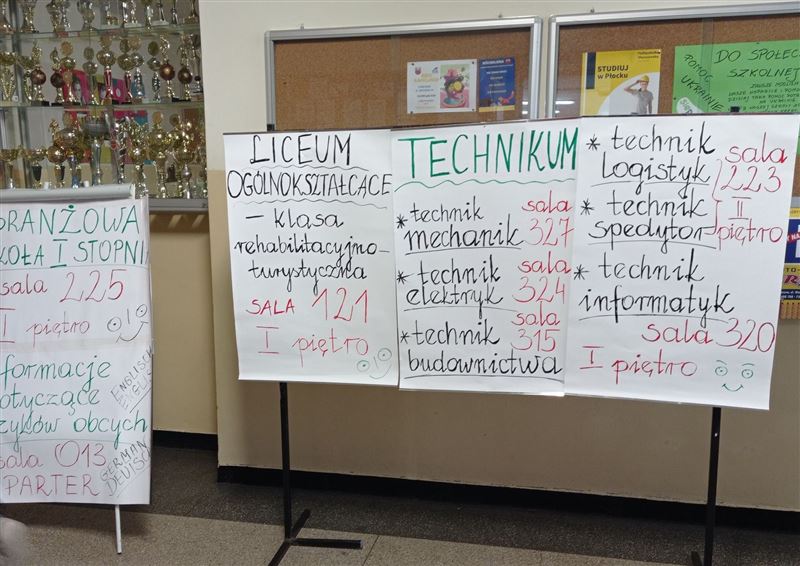 BRANŻOWA
SZKOŁA I STOPNIA
sala 225
I piętro
informacje
dotyczące
języków obcych
sala 013
PARTER
ENGLISCH
ENGLISH
GERMAN
DEUTSCH
LICEUM
OGÓLNOKSZTAŁCĄCE
– klasa
rehabilitacyjno–
turystyczna
SALA 121
I piętro
TECHNIKUM
* technik sala
mechanik 327
* technik sala
elektryk 324
* technik sala 315
budownictwa
* technik
logistyk
* technik
spedytor
sala
223
II
piętro
* technik
informatyk
sala 320
I piętro
STUDIUJ
w Płocku
DO SPOŁECZ
SZKOLNEJ
POMOC
UKRAINIE